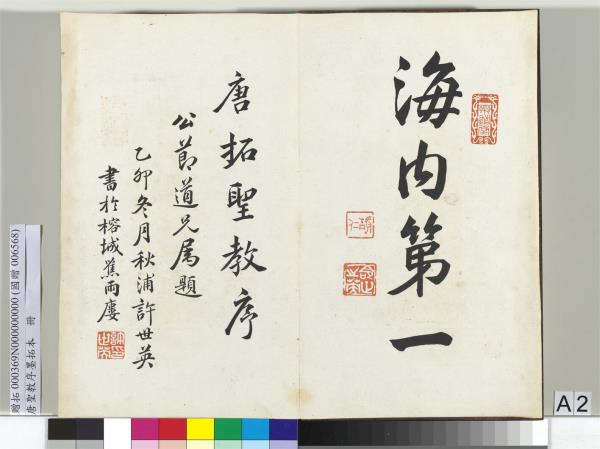 海内第一
唐拓聖教序
公節道兄属題
乙卯冬月秋浦許世英
書於榕城蕉雨廔
贈拓 000369N000000000 (國贈 006568)
唐聖教序墨拓本 冊
A 2